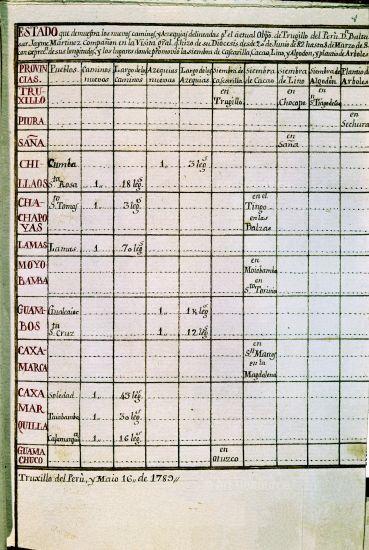 ESTADO que demuestra los nuevos caminos, y Azequias delineadas pr. el actual Obpo. de Truxillo del Perù Dn. Baltasar
Jayme Martinez Compañon en la Visita gral. qe. hizo de su Diocesis desde 20 de Junio de 82 hasta 8 de Marzo de 85
con expresn. de sus longitudes, y los lugares donde promovió la siembra de Cascarilla, Cacao, Lino, y Algodon, y plantío de Arboles
PROVINCIAS. Pueblos. Caminos nuevos Largo de los Caminos Azequias nuevas Largo de las Azequias Siembra de Cascarilla Siembra de Cacao Siembra de Lino Siembra de Algodon Plantío de Arboles
TRUXILLO en Truxillo en Chocope en
PIURA en Sechura
SAÑA en Saña
CHILLAOS Cumba 1,, 3 legs.
Sta. Rosa 1,, 18 legs.
CHACHAPOYAS Sto. Tomas 1,, 3 legs. en el Tingo
en las Balzas
LAMAS Lamas 1 70 legs.
MOYOBAMBA en Moiobamba
en Sto. Toribio
GUAMBOS Gualcaioc 1,, 18 legs.
Sta. Cruz 1,, 12 legs.
CAXAMARCA en Sn. Marcos
en la Magdalena
CAXAMARQUILLA Soledad 1,, 45 legs.
Taiabamba 1,, 30 legs.
Caxamarqlla. 1,, 16 legs.
GUAMACHUCO en Otuzco
Truxillo del Perù, y Maio 16,, de 1789,,